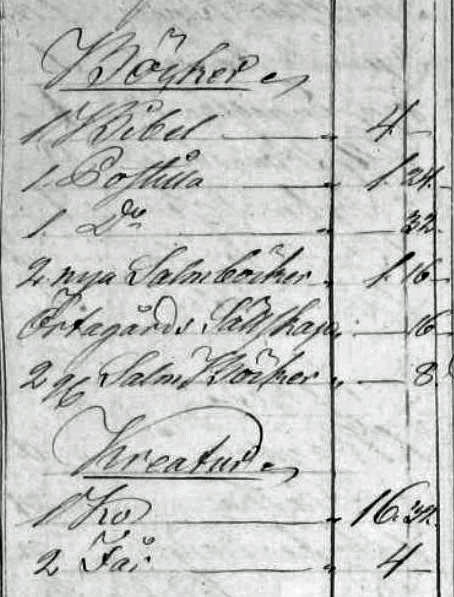 Böcker
1 Bibel — " 4 —
1. Postilla — " 1. 24.
1. Do — " — 32.
2 nya Salmböcker " 1. 16.
Örtagårds Sällskap " — 16
2 gl Salm Böcker " — 8.
Kreatur
1 Ko — " 16. 32.
2 Får — " 4 —